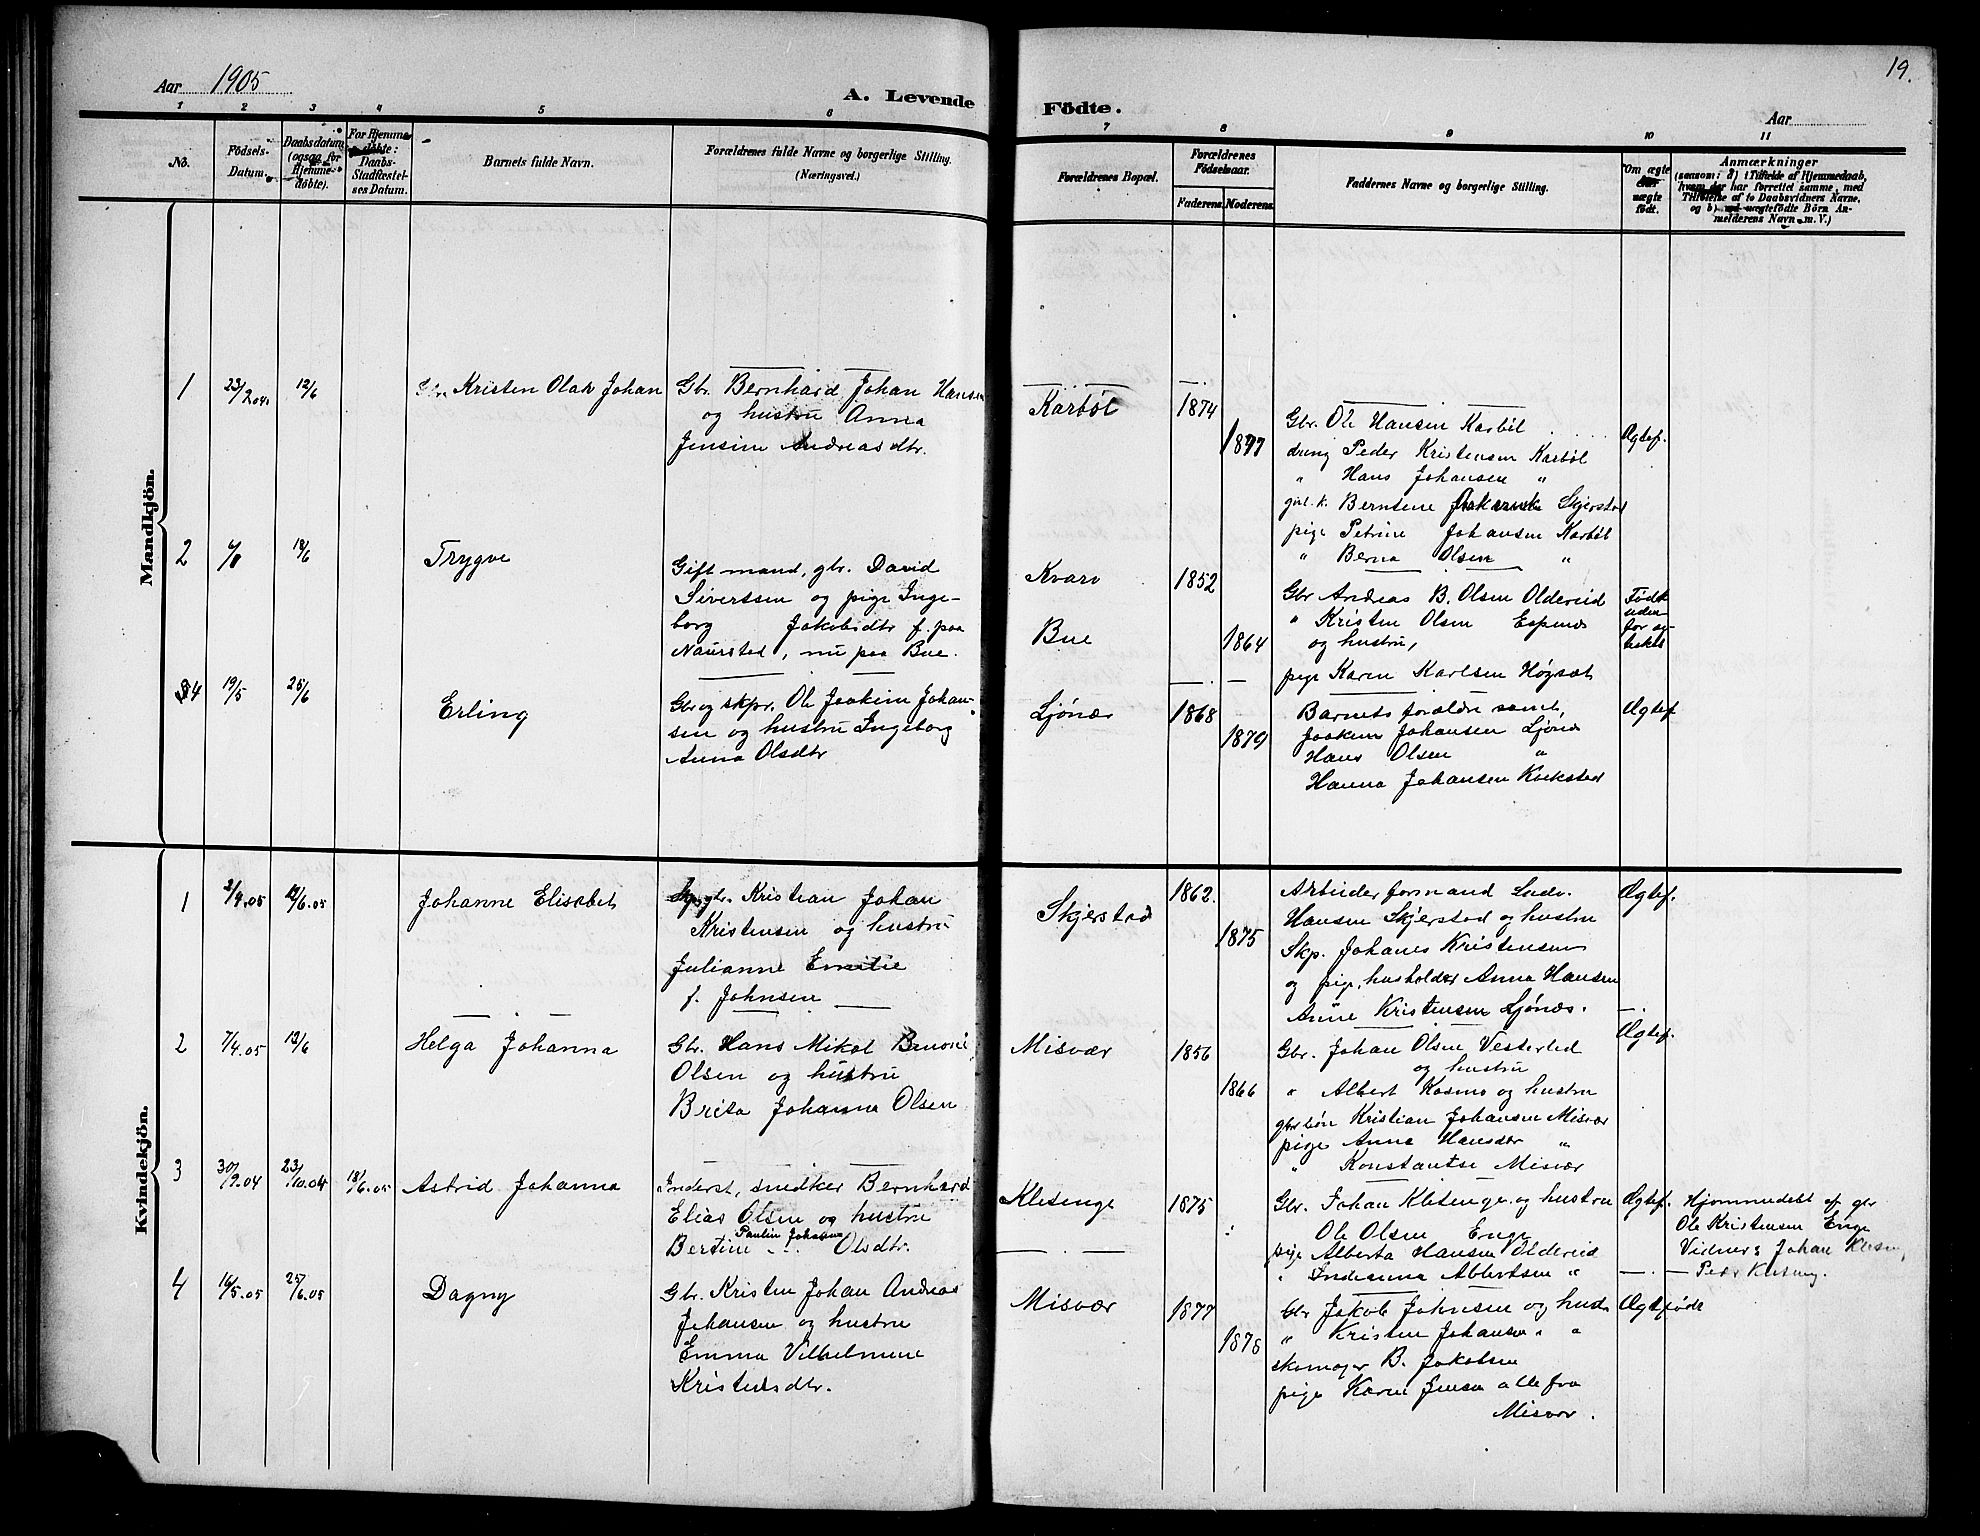 19.
Aar 1905
A. Levende Födte.
Aar
1 2 3 4 5 6 7 8 9 10 11
No.
Födsels-Datum.
Daabsdatum (ogsaa for Hjemme-døbte).
For Hjemme-døbte: Daabs-Stadfæstel-ses Datum.
Barnets fulde Navn.
Forældrenes fulde Navne og borgerlige Stilling.
(Næringsvei.)
Forældrenes Bopæl.
Forældrenes Födselsaar.
Faderens. Moderens.
Faddernes Navne og borgerlige Stilling.
Om ægte eller uægte født.
Anmærkninger
(saasom: a) i Tilfælde af Hjemmedaab,
hvem der har forrettet samme, med
Tilføielse af to Daabsvidners Navne,
og b) ved uægtefödte Börn An-
melderens Navn m. V.)
Mandkjön.
1 23/2 04. 12/6 Kristen Olav Johan
Gbr. Bernhard Johan Hansen
og hustru Anna
Jensine Andreasdtr.
Karbøl 1874 1877
Gbr. Ole Hansen Karbøl
dreng Peder Kristensen Karbøl
" Hans Johansen "
Berntene Skjerstad
pige Petrine Johansen Karbøl
" Berna Olsen "
Ægtef.
2 18/6 Trygve
Gift mand, gbr. David
Sivertsen og pige Inge-
borg Jakobsdtr f. paa
Naurstad, nu paa Bue.
Kvarv
Bue
1852 1864
Gbr Andreas B. Olsen Oldereid
" Kristen Olsen Espenes
og hustru,
pige Karen Karlsen Høgset
Født
uden-
for æg-
teskab
4 19/5 25/6 Erling
Gbr og skpr. Ole Joakim Johan-
sen og hustru Ingeborg
Anna Olsdtr
Ljønær 1868 1879
Barnets forældre samt,
Joakim Johansen Ljønes
Hans Olsen "
Hanna Johansen Kvikstad
Ægtef
Kvindekjön.
1 2/4.05 12/6.05 Johanne Elisabet
gbr. Kristian Johan
Kristensen og hustru
Julianne Emelie
f. Johnsen
Skjerstad 1862. 1875
Arbeiderformand Ludv.
Hansen Skjerstad og hustru
Skp. Johanes Kristensen
og pige, husholder Anna Hansen
Anne Kristensen Ljønes.
Ægtef.
2 7/4.05 12/6 Helga Johanna
Gbr. Hans Mikal
Olsen og hustru
Brita Johanna Olsen
Misvær 1856 1866
Gbr. Johan Olsen Vesterlid
og hustru
" Albert Kosmo og hustru
Kristian Johansen Misvær
pige Anna Hansdtr "
" Konstantse Misvær
Ægtef.
3 30/9.04 23/10.04 18/6.05 Astrid Johanna
Inderst, snidker Bernhard
Elias Olsen og hustru
Paulin Johanna
Bertine Olsdtr.
Kletenge 1875
Gbr. Johan Kletenge og hustru
Ole Olsen Enge
pige Alberta Hansen Oldereid
" Albertsen "
Ægtef.
Hjemmedøbt af gbr
Ole Kristensen Enge
Vidner: Johan
4 16/5.05 25/6.05 Dagny
Gbr. Kristen Johan Andreas
Johansen og hustru
Emma Vilhelmine
Kristensdtr.
Misvær 1877 1878
Gbr Jakob Johnsen og hustr
" Kristen Johansen "
skomager B. Jakobsen
pige Karen Jensen alle fra
Misvær.
Ægtefødt